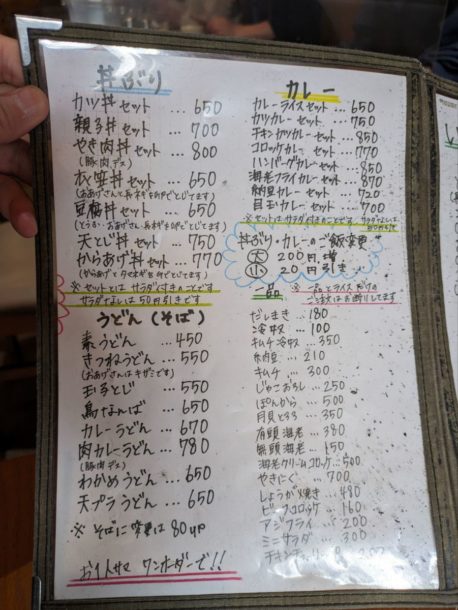 丼ぶり
カツ丼セット ... 650
親子丼セット ... 700
やき肉丼セット ... 800
(豚肉デス)
衣笠丼セット ... 650
(おあげさんと長ネギを卵でとじてます)
豆腐丼セット ... 650
(とうふ・おあげさん・長ネギを卵でとじてます)
天とじ丼セット ... 750
からあげ丼セット ... 770
(からあげとタマネギを卵でとじてます)
※セットとは サラダ付きのことです
サラダなしは50円引きです
うどん(そば)
素うどん ... 450
きつねうどん ... 550
(おあげさんはキザミです)
玉子とじ ... 550
鳥なんば ... 650
カレーうどん ... 670
肉カレーうどん ... 780
(豚肉デス)
わかめうどん ... 650
天プラうどん ... 650
※ そばに変更は 80up
お1人サマ ワンオーダーで!!
カレー
カレーライスセット ... 650
カツカレーセット ... 750
チキンカツカレーセット ... 850
コロッケカレーセット ... 770
ハンバーグカレーセット ... 850
海老フライカレーセット ... 870
納豆カレーセット ... 720
目玉カレーセット ... 700
※セットはサラダ付きのことです サラダなしは
丼ぶり・カレーのご飯変更
大 200円増
小 20円引き
一品 ※ 一品とライスだけの
ご注文はお断りしてます
だしまき ... 180
冷奴 ... 100
キムチ冷奴 ... 350
納豆 ... 210
キムチ ... 300
じゃこおろし ... 250
ぽんから ... 500
月見とろろ ... 350
有頭海老 ... 380
無頭海老 ... 150
海老クリームコロッケ ... 500
やきにく ... 700
しょうが焼き ... 480
ビーフコロッケ ... 160
アジフライ ... 200
ミニサラダ ... 300